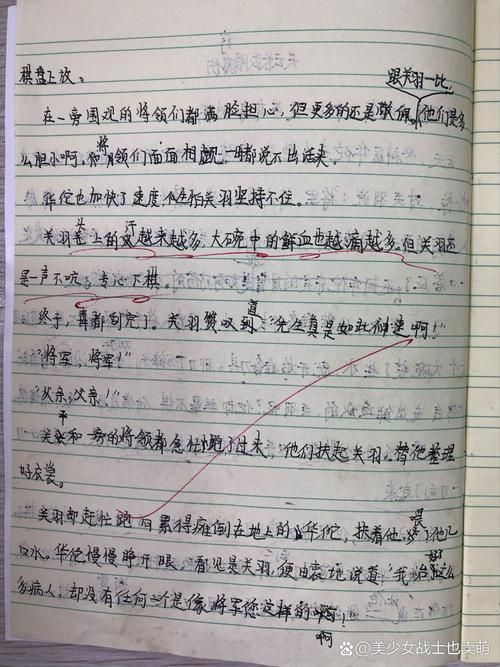 棋盘上放。
跟关羽一比，
在一旁围观的将领们都满脸担心，但更多的还是敬佩。他们是多
么胆小啊，和将领们面面相觑，一时都说不出话来。
华佗也加快了速度，生怕关羽坚持不住。
关羽头上的汗越来越多，大碗中的鲜血也越滴越多。但关羽还
是一声不吭，专心下棋。
终于，毒都刮完了。关羽赞叹道：“先生真是如此神速啊！”
“将军，将军！”
“父亲，父亲！”
关平和一旁的将领都急忙跑了过来，他们扶起关羽，替他整理
好衣裳。
关羽却赶忙跑向累得瘫倒在地上的华佗，扶着他，喂了他几
口水。华佗慢慢睁开眼，看见是关羽，便由衷地说道：“我治好这么
多病人，却没有任何一个是像将军您这样的啊！
啊
@美少女战士也卖萌